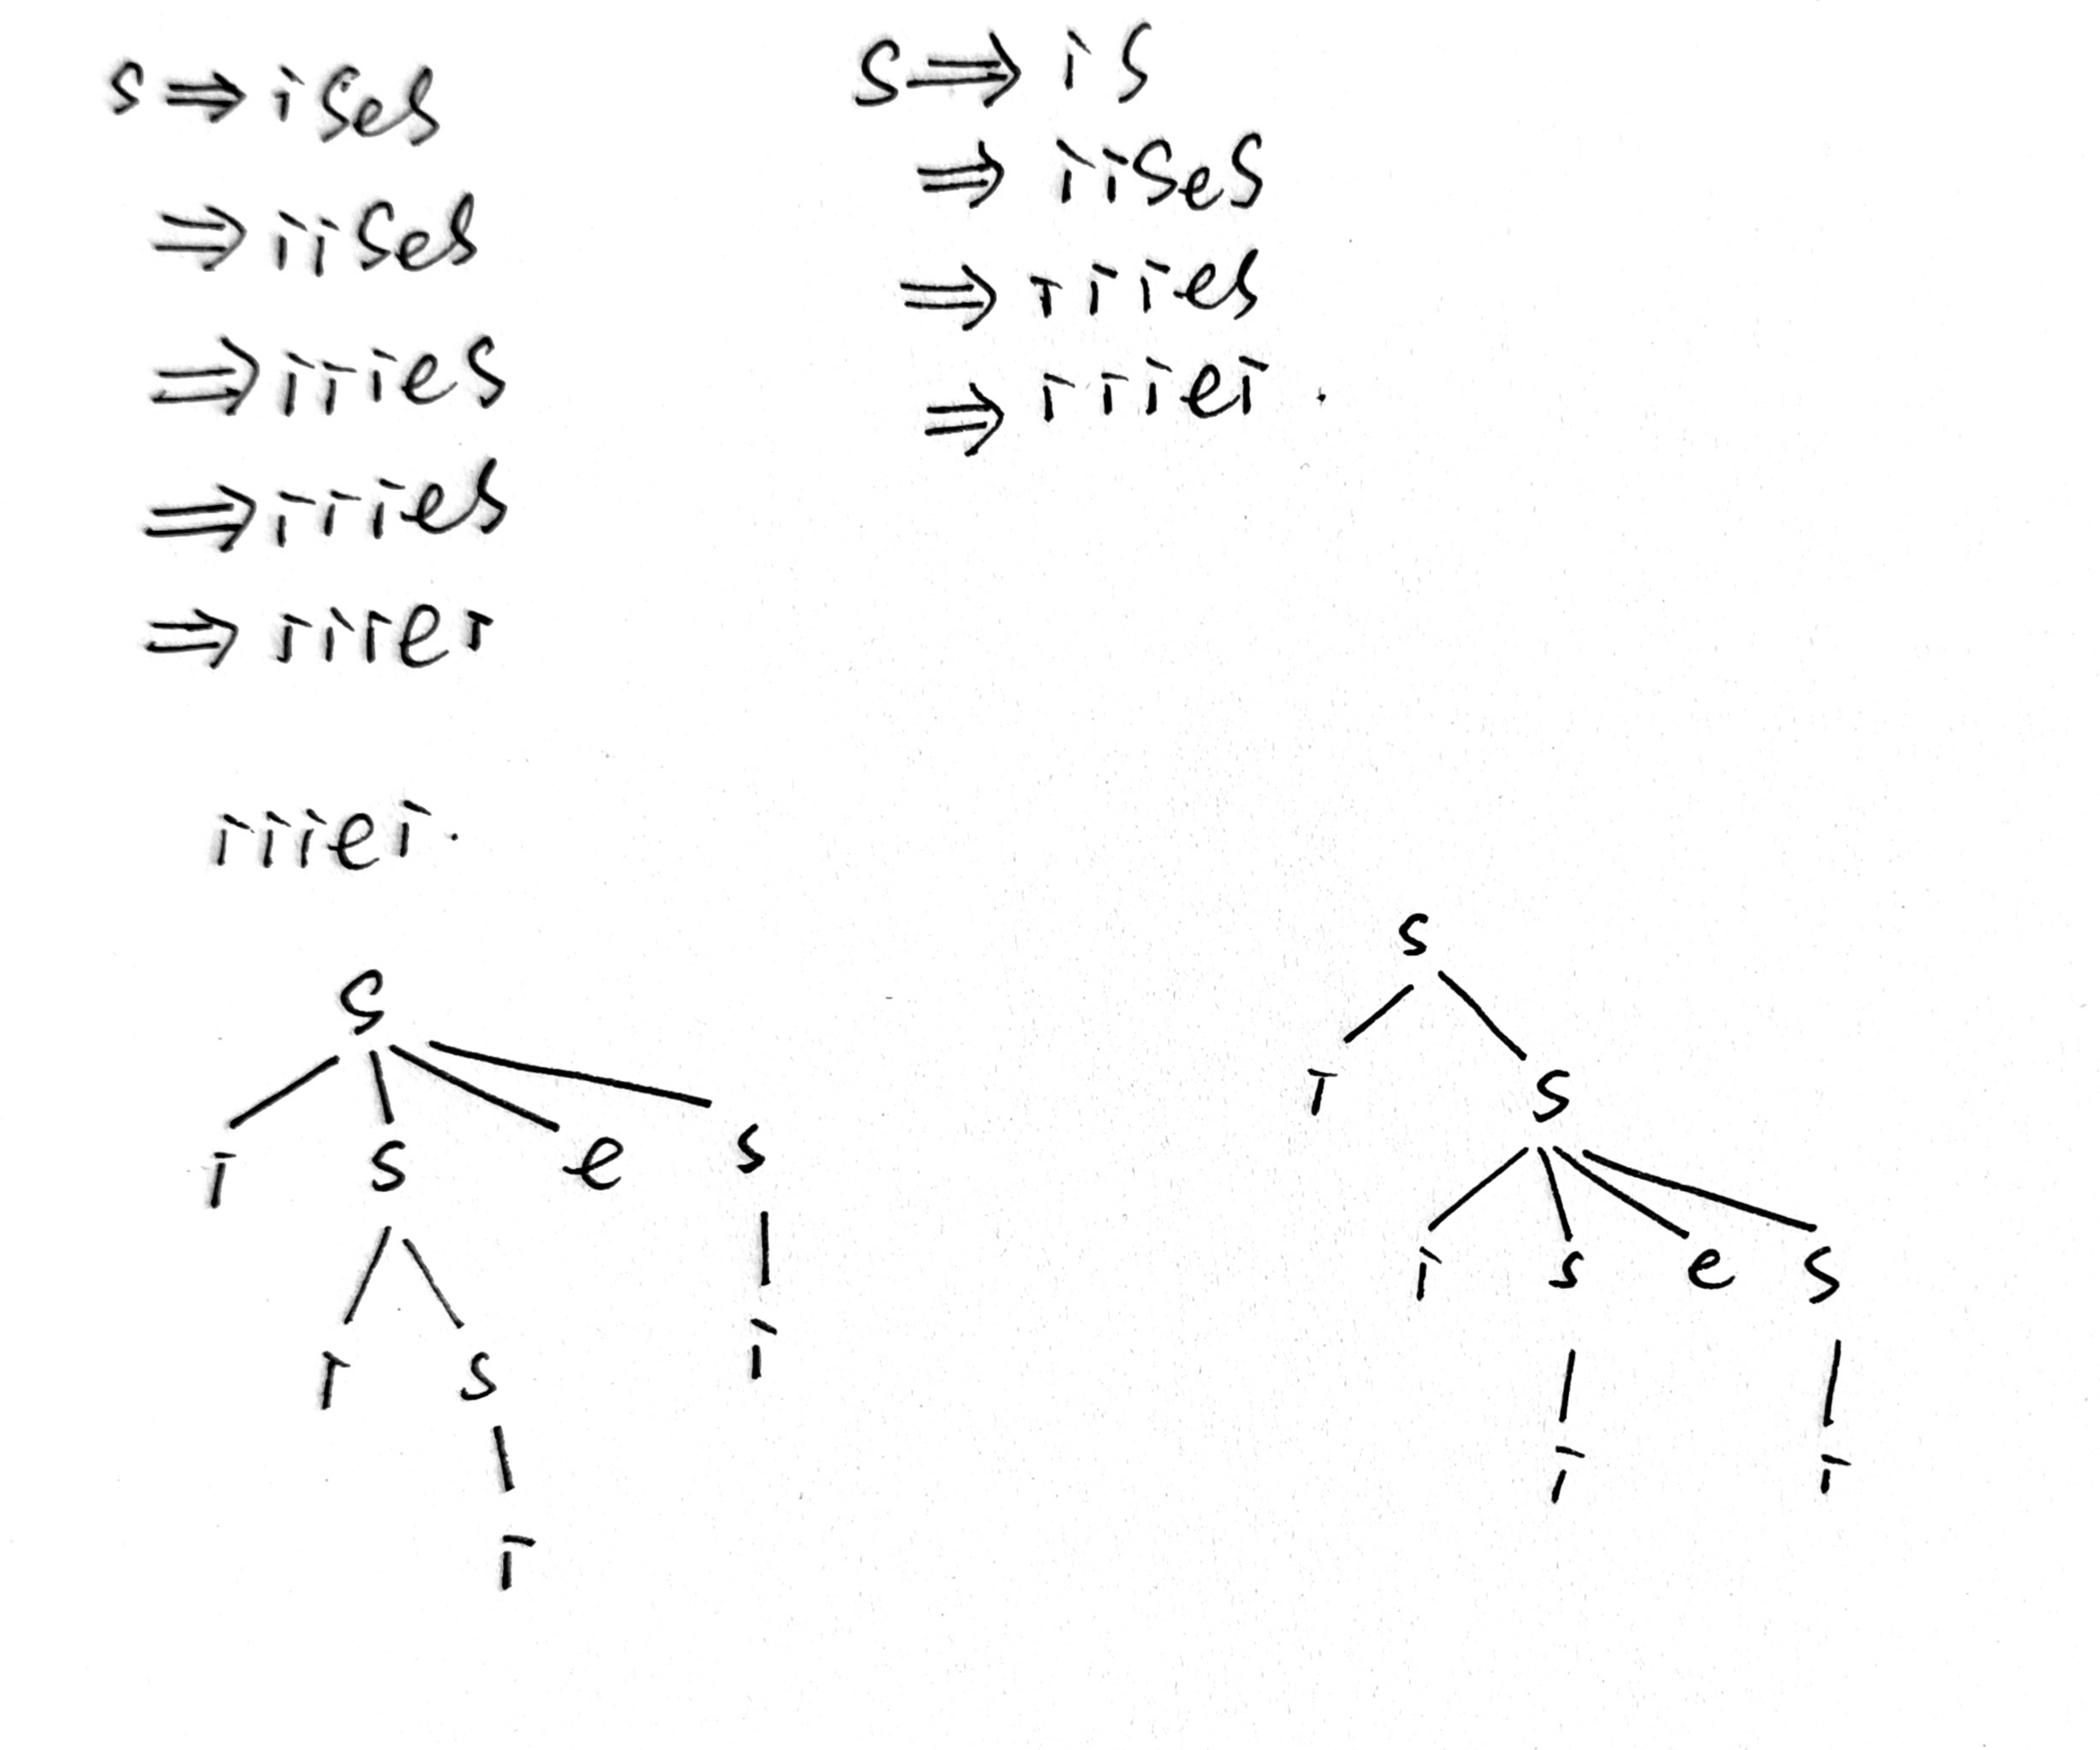 S ⇒ iSeS
⇒ iiSeS
⇒ iiieS
⇒ iiieS
⇒ iiiei
S ⇒ iS
⇒ iiSeS
⇒ iiieS
⇒ iiiei.
iiiei.
S
i S e S
i S i
i
S
i S
i S e S
i i